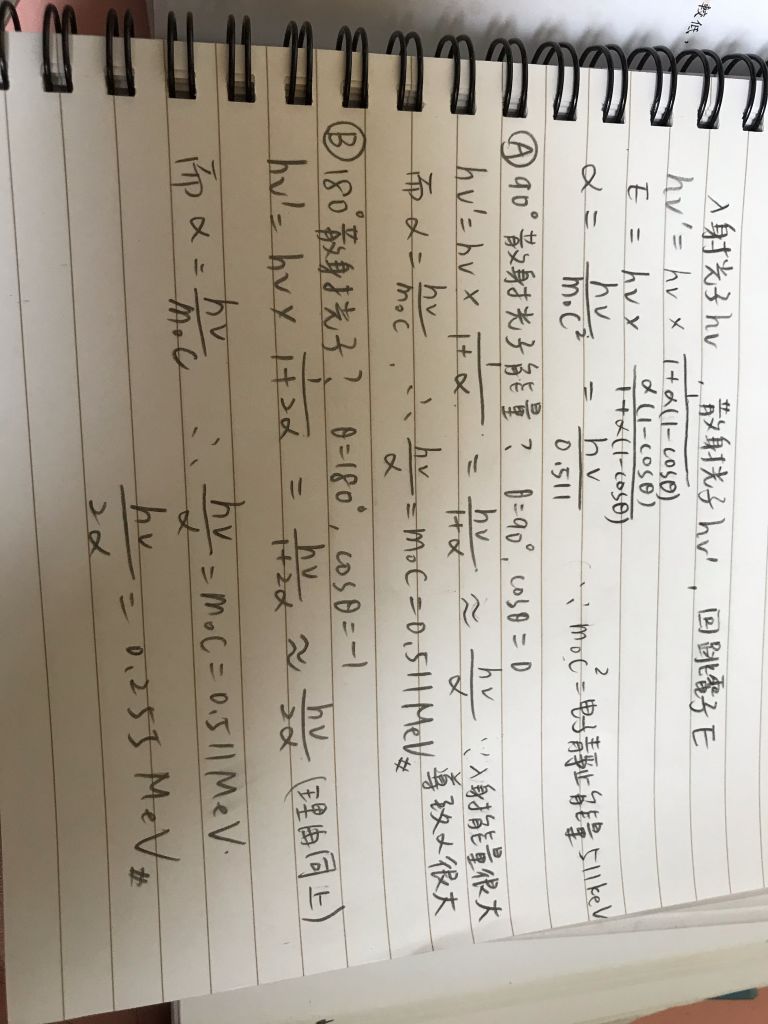 入射光子hν, 散射光子hν', 回跳電子E
hν' = hν × 1/(1+α(1-cosθ))
E = hν × α(1-cosθ)/(1+α(1-cosθ))
α = hν/m₀C² = hν/0.511 (∵ m₀C² = 电子靜止能量 511keV
Ⓐ 90° 散射光子能量? θ=90°, cosθ=0
hν' = hν × 1/(1+α) = hν/(1+α) ≈ hν/α ∵入射能量很大
導致α很大
而 α = hν/m₀C, ∴ hν/α = m₀C = 0.511MeV #
Ⓑ 180° 散射光子? θ=180°, cosθ=-1
hν' = hν × 1/(1+2α) = hν/(1+2α) ≈ hν/2α (理由同上)
而 α = hν/m₀C ∴ hν/α = m₀C = 0.511MeV.
hν/2α = 0.255 MeV #
較低,